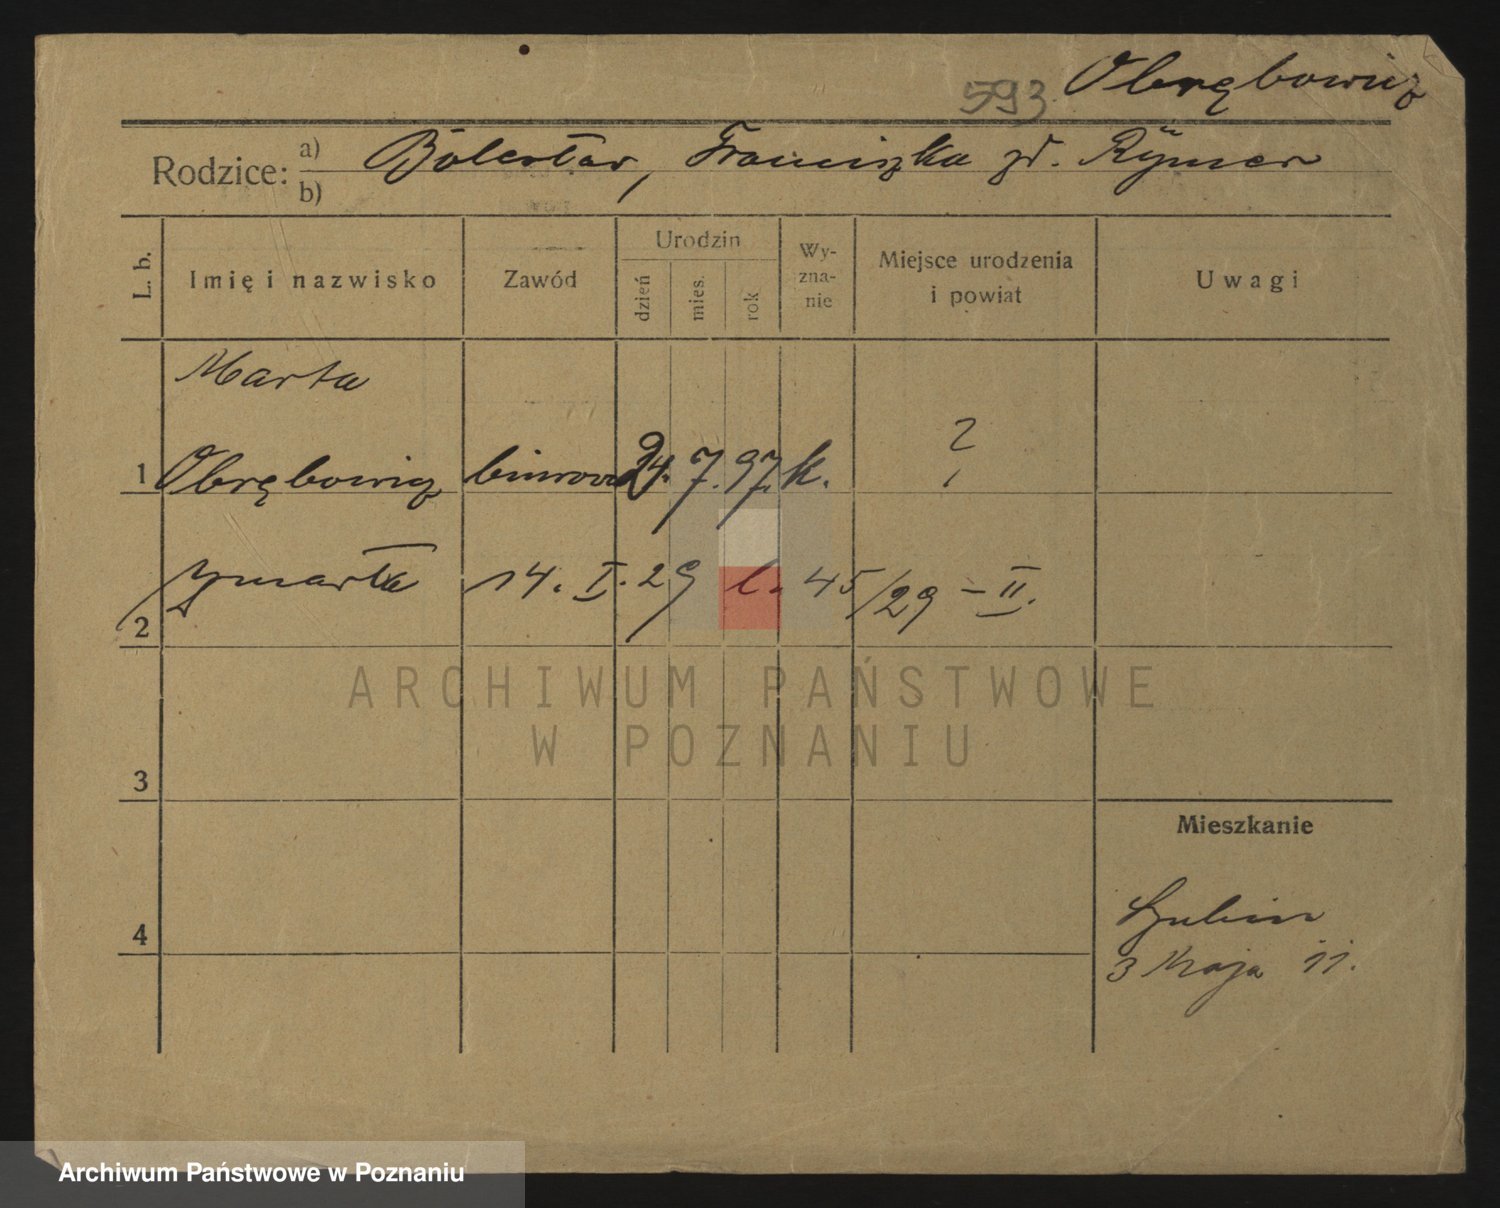 593 Obrębowicz
Rodzice: a) Bolesław, Franciszka zd. Rymer
b)
L. b.
Imię i nazwisko
Zawód
Urodzin
dzień
mies.
rok
Wy-
zna-
nie
Miejsce urodzenia
i powiat
Uwagi
Marta
1 Obrębowicz biurow 24. 7. 97. k. ?
2 zmarła 14. I. 29 l. 45/29 – II.
ARCHIWUM PAŃSTWOWE
W POZNANIU
3
Mieszkanie
4
Szubin
3 Maja 11.
Archiwum Państwowe w Poznaniu